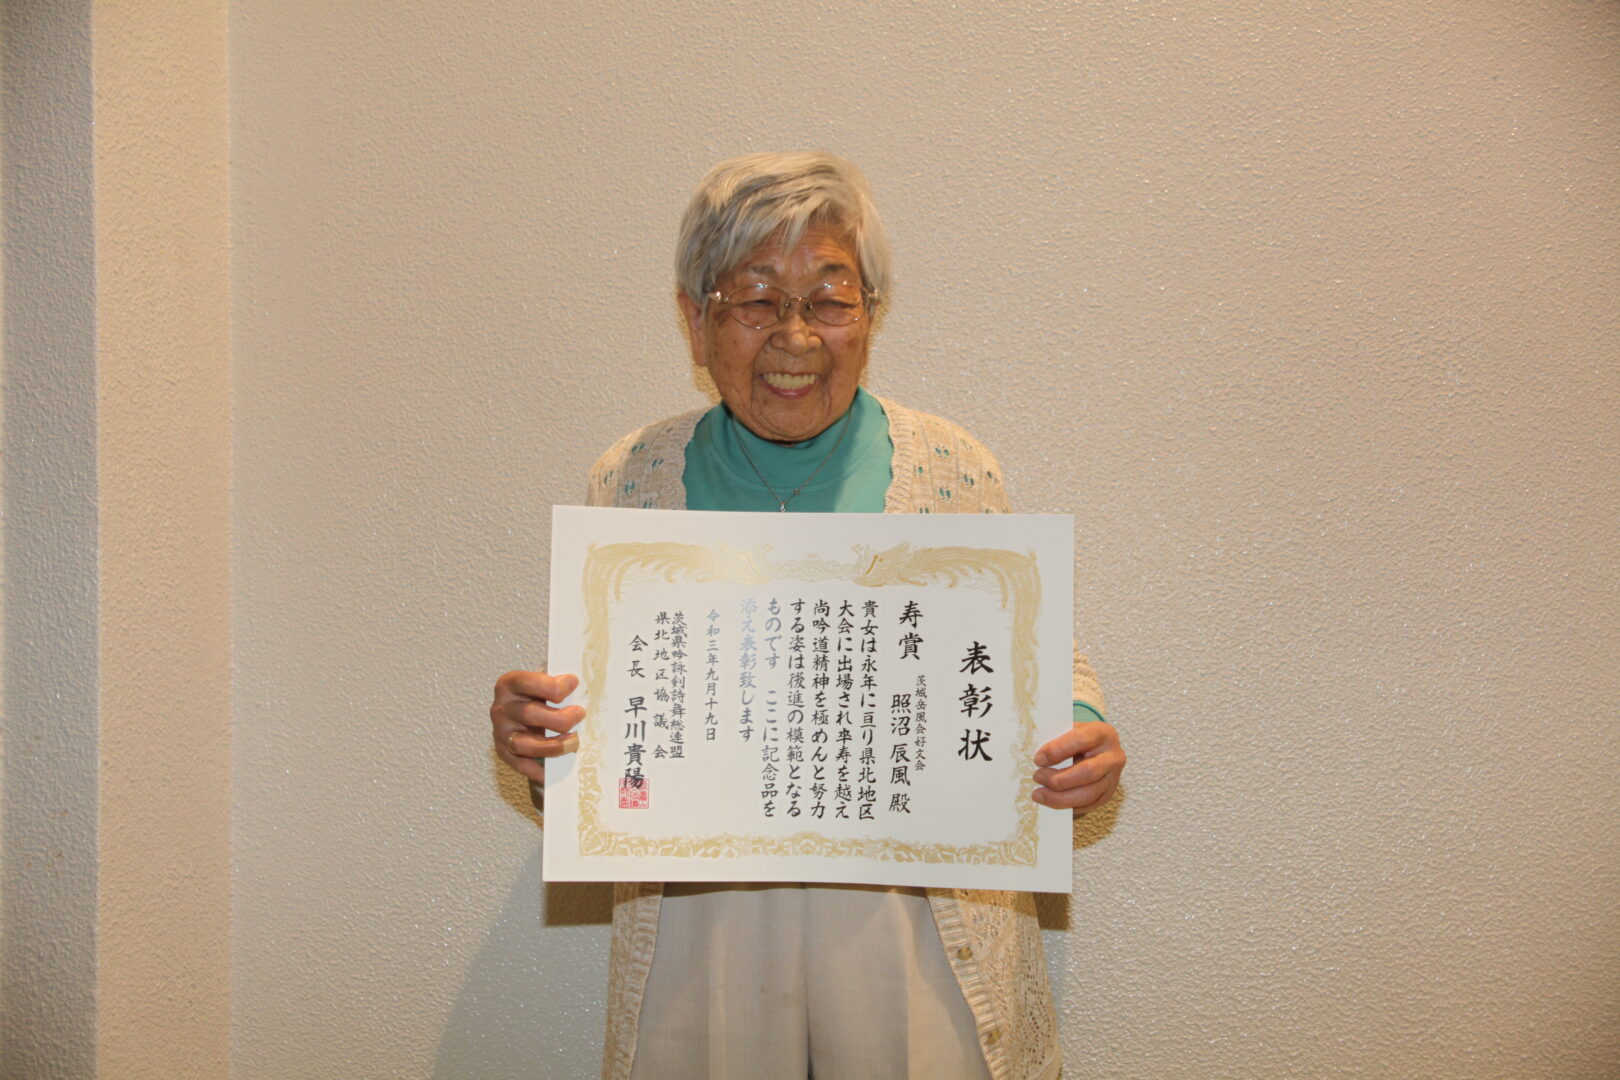 表彰状
寿賞
茨城岳風会好文会
照沼辰風殿
貴女は永年に亘り県北地区
大会に出場され卒寿を越え
尚吟道精神を極めんと努力
する姿は後進の模範となる
ものです ここに記念品を
添え表彰致します
令和三年九月十九日
茨城県吟詠剣詩舞総連盟
県北地区協議会
会長 早川貴陽